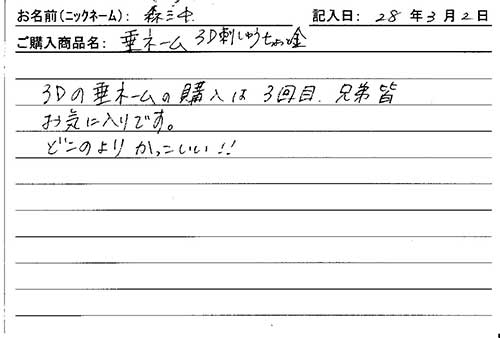 お名前(ニックネーム): 森三中 記入日: 28年3月2日
ご購入商品名: 垂ネーム 3D刺しゅう
3Dの垂ネームの購入は3回目、兄弟皆
お気に入りです。
どこのよりかっこいい!!